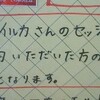 イルカさんのセッシ
日いただいた方の
となります。